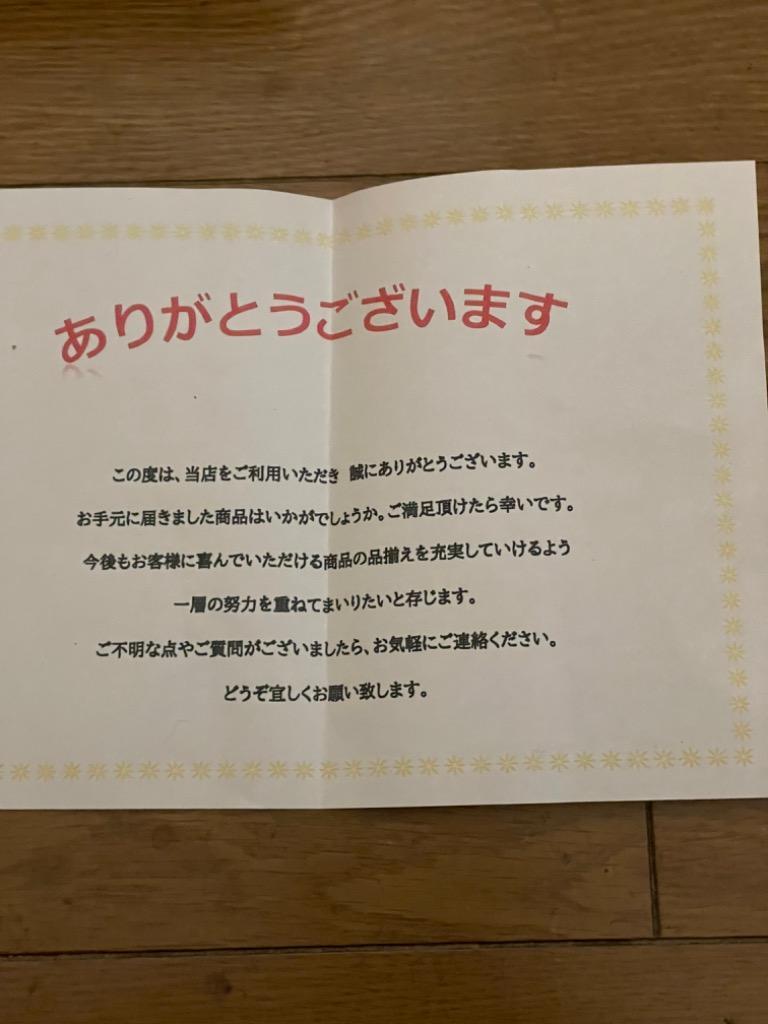 ありがとうございます
この度は、当店をご利用いただき 誠にありがとうございます。
お手元に届きました商品はいかがでしょうか。ご満足頂けたら幸いです。
今後もお客様に喜んでいただける商品の品揃えを充実していけるよう
一層の努力を重ねてまいりたいと存じます。
ご不明な点やご質問がございましたら、お気軽にご連絡ください。
どうぞ宜しくお願い致します。